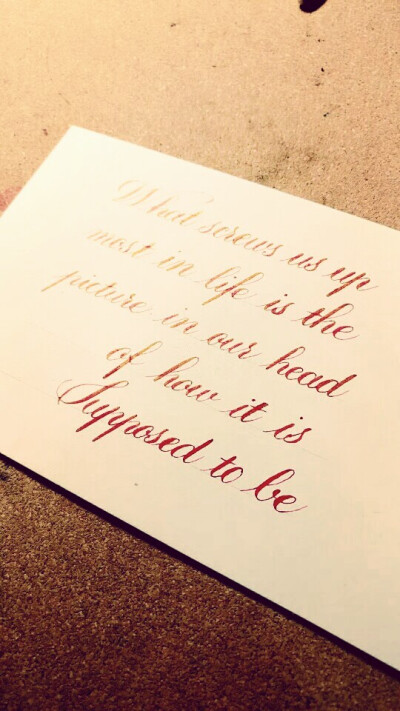 What screws us up
most in life is the
picture in our head
of how it is
Supposed to be